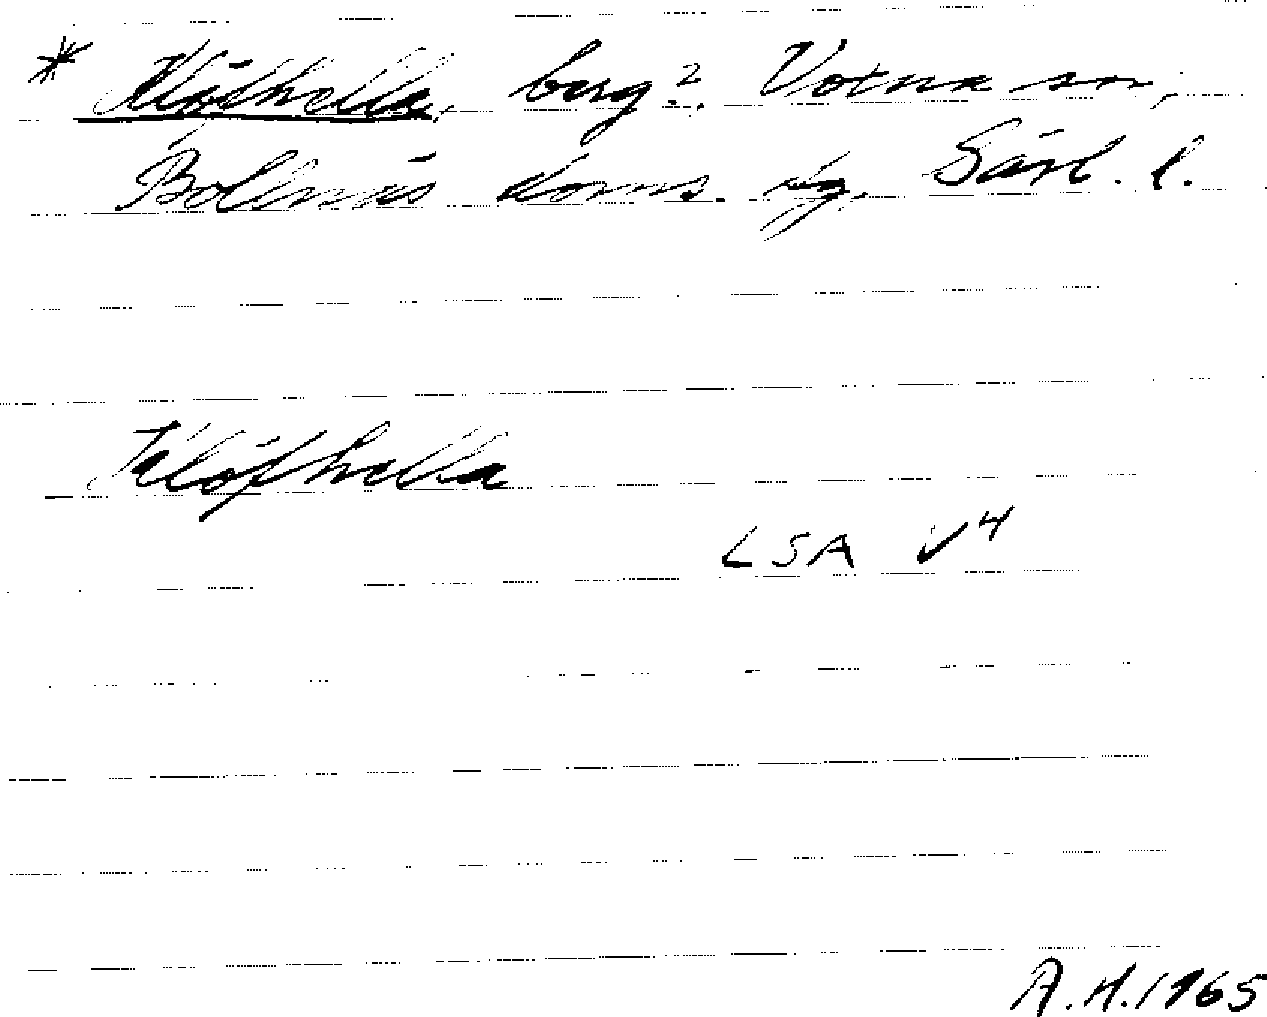 * Klöfhella, berg?. Votna sn,
Bollnäs doms. dg. Gävl. l.
Klöfhella
LSA V4
A.H. 1965